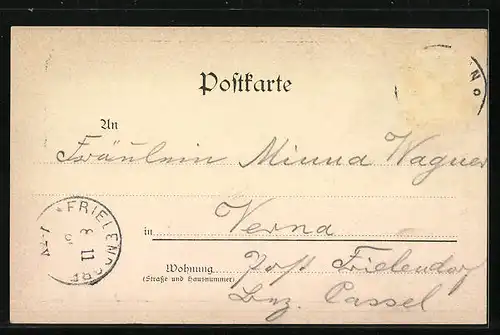 Postkarte
An
Fräulein Minna Wagner
in Verna
Wohnung
(Straße und Hausnummer)
Post Frielendorf
Bez. Cassel
* FRIELENDORF
8 11